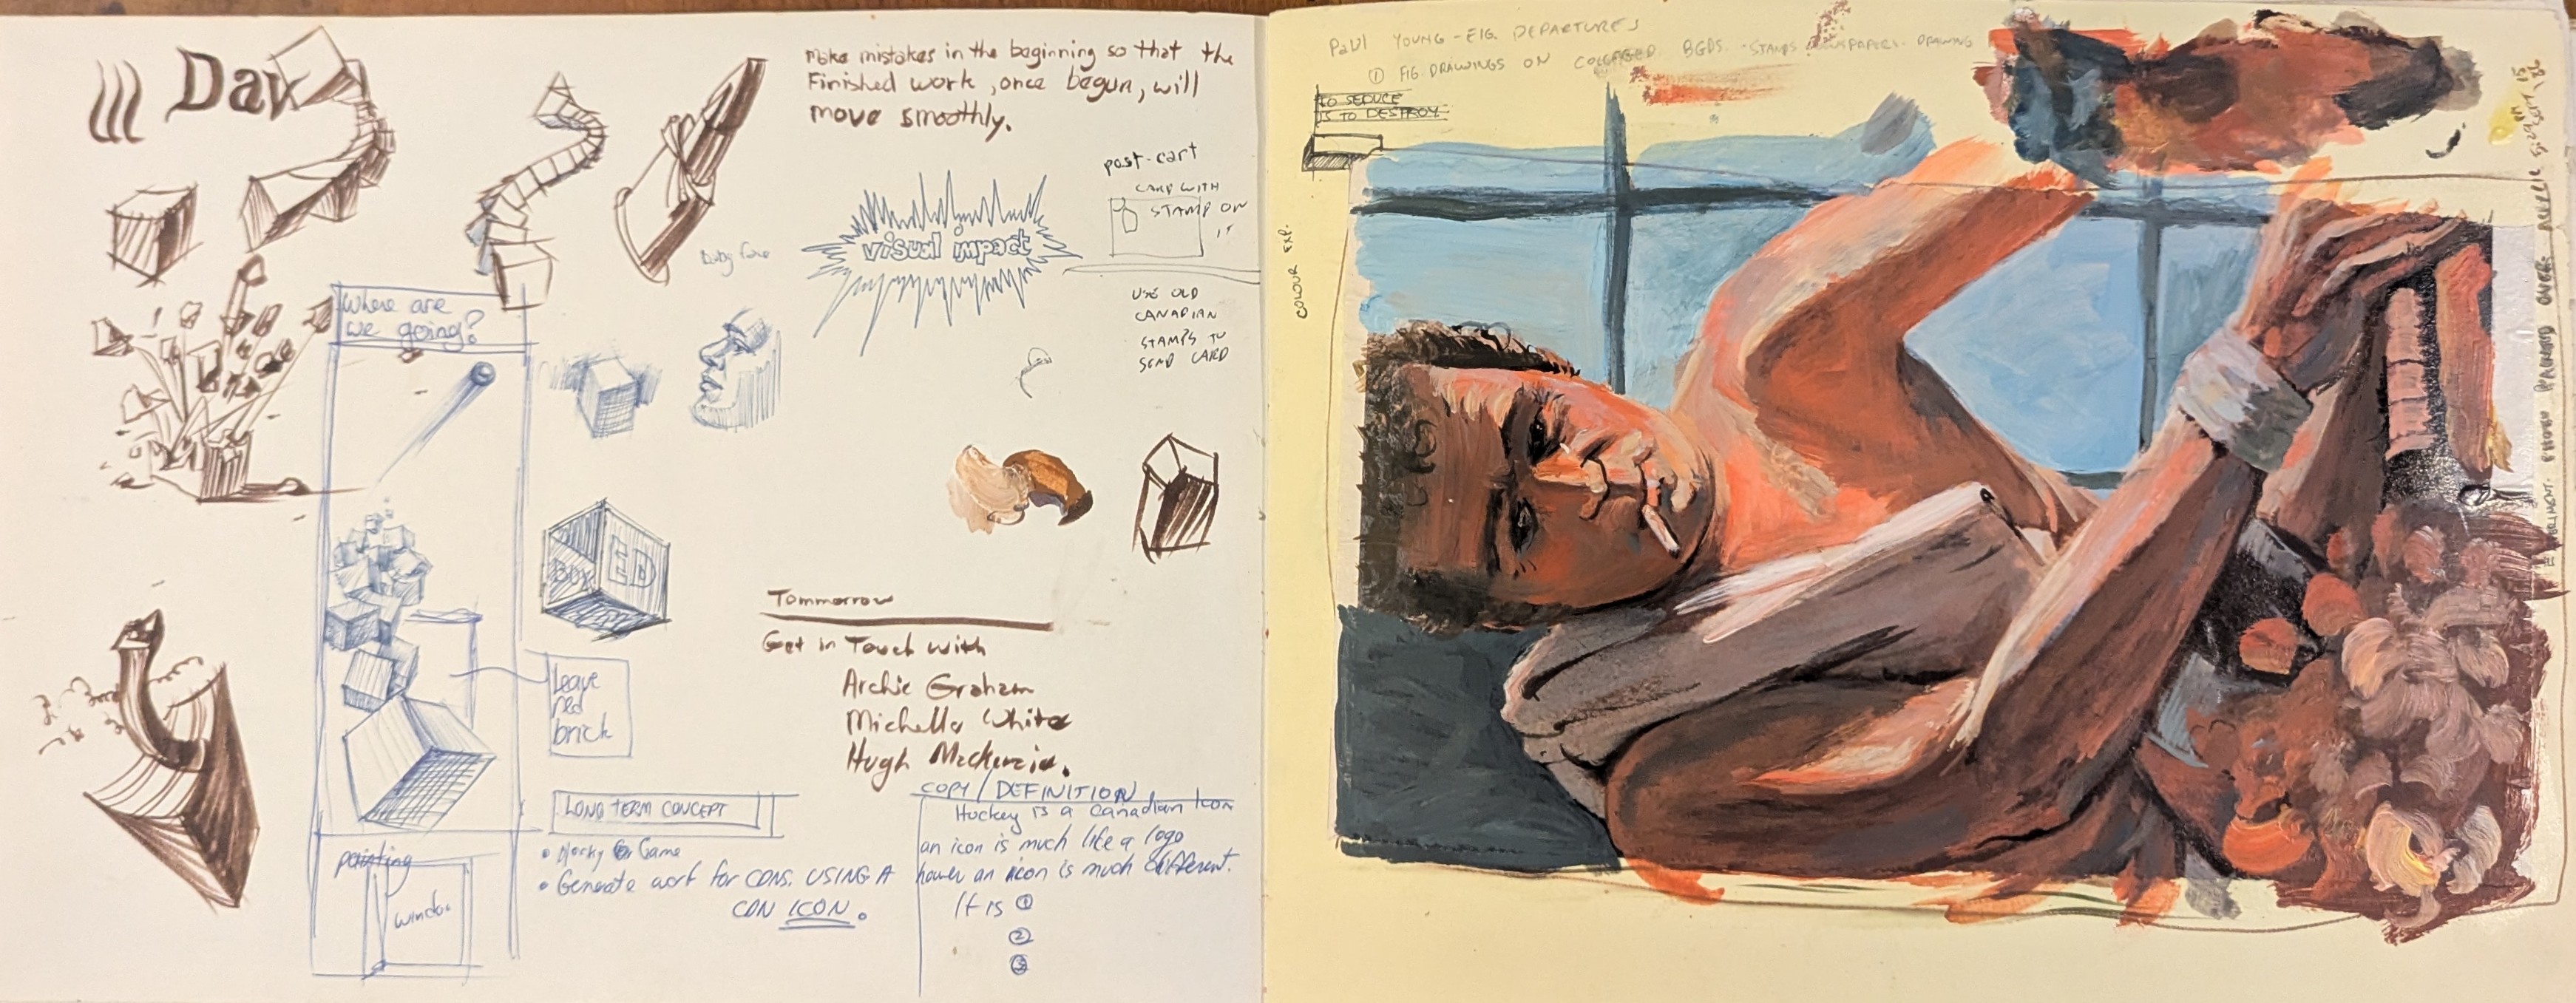 Dav
make mistakes in the beginning so that the
Finished work, once begun, will
move smoothly.
post-cart
CARD WITH
STAMP ON
IT
visual impact
USE OLD
CANADIAN
STAMPS TO
SEND CARD
Where are
we going?
BOX
ED
Leave
red
brick
Tommorrow
Get in Touch with
Archie Graham
Michelle White
Hugh Mackenzie.
LONG TERM CONCEPT
Game
• Generate work for CDNS. USING A
CDN ICON.
painting
window
COPY/DEFINITION
Hockey is a Canadian Icon
an icon is much like a logo
an icon is much different.
It is ①
②
③
Paul YOUNG - FIG. DEPARTURES
① FIG. DRAWINGS ON COLLAGED BGDS. - STAMPS NEWSPAPERS - DRAWING
TO SEDUCE
IS TO DESTROY
COLOUR EXP.
EXPERIMENT. PHOTO PAINTED OVER. ACRYLIC
SEPT. 15